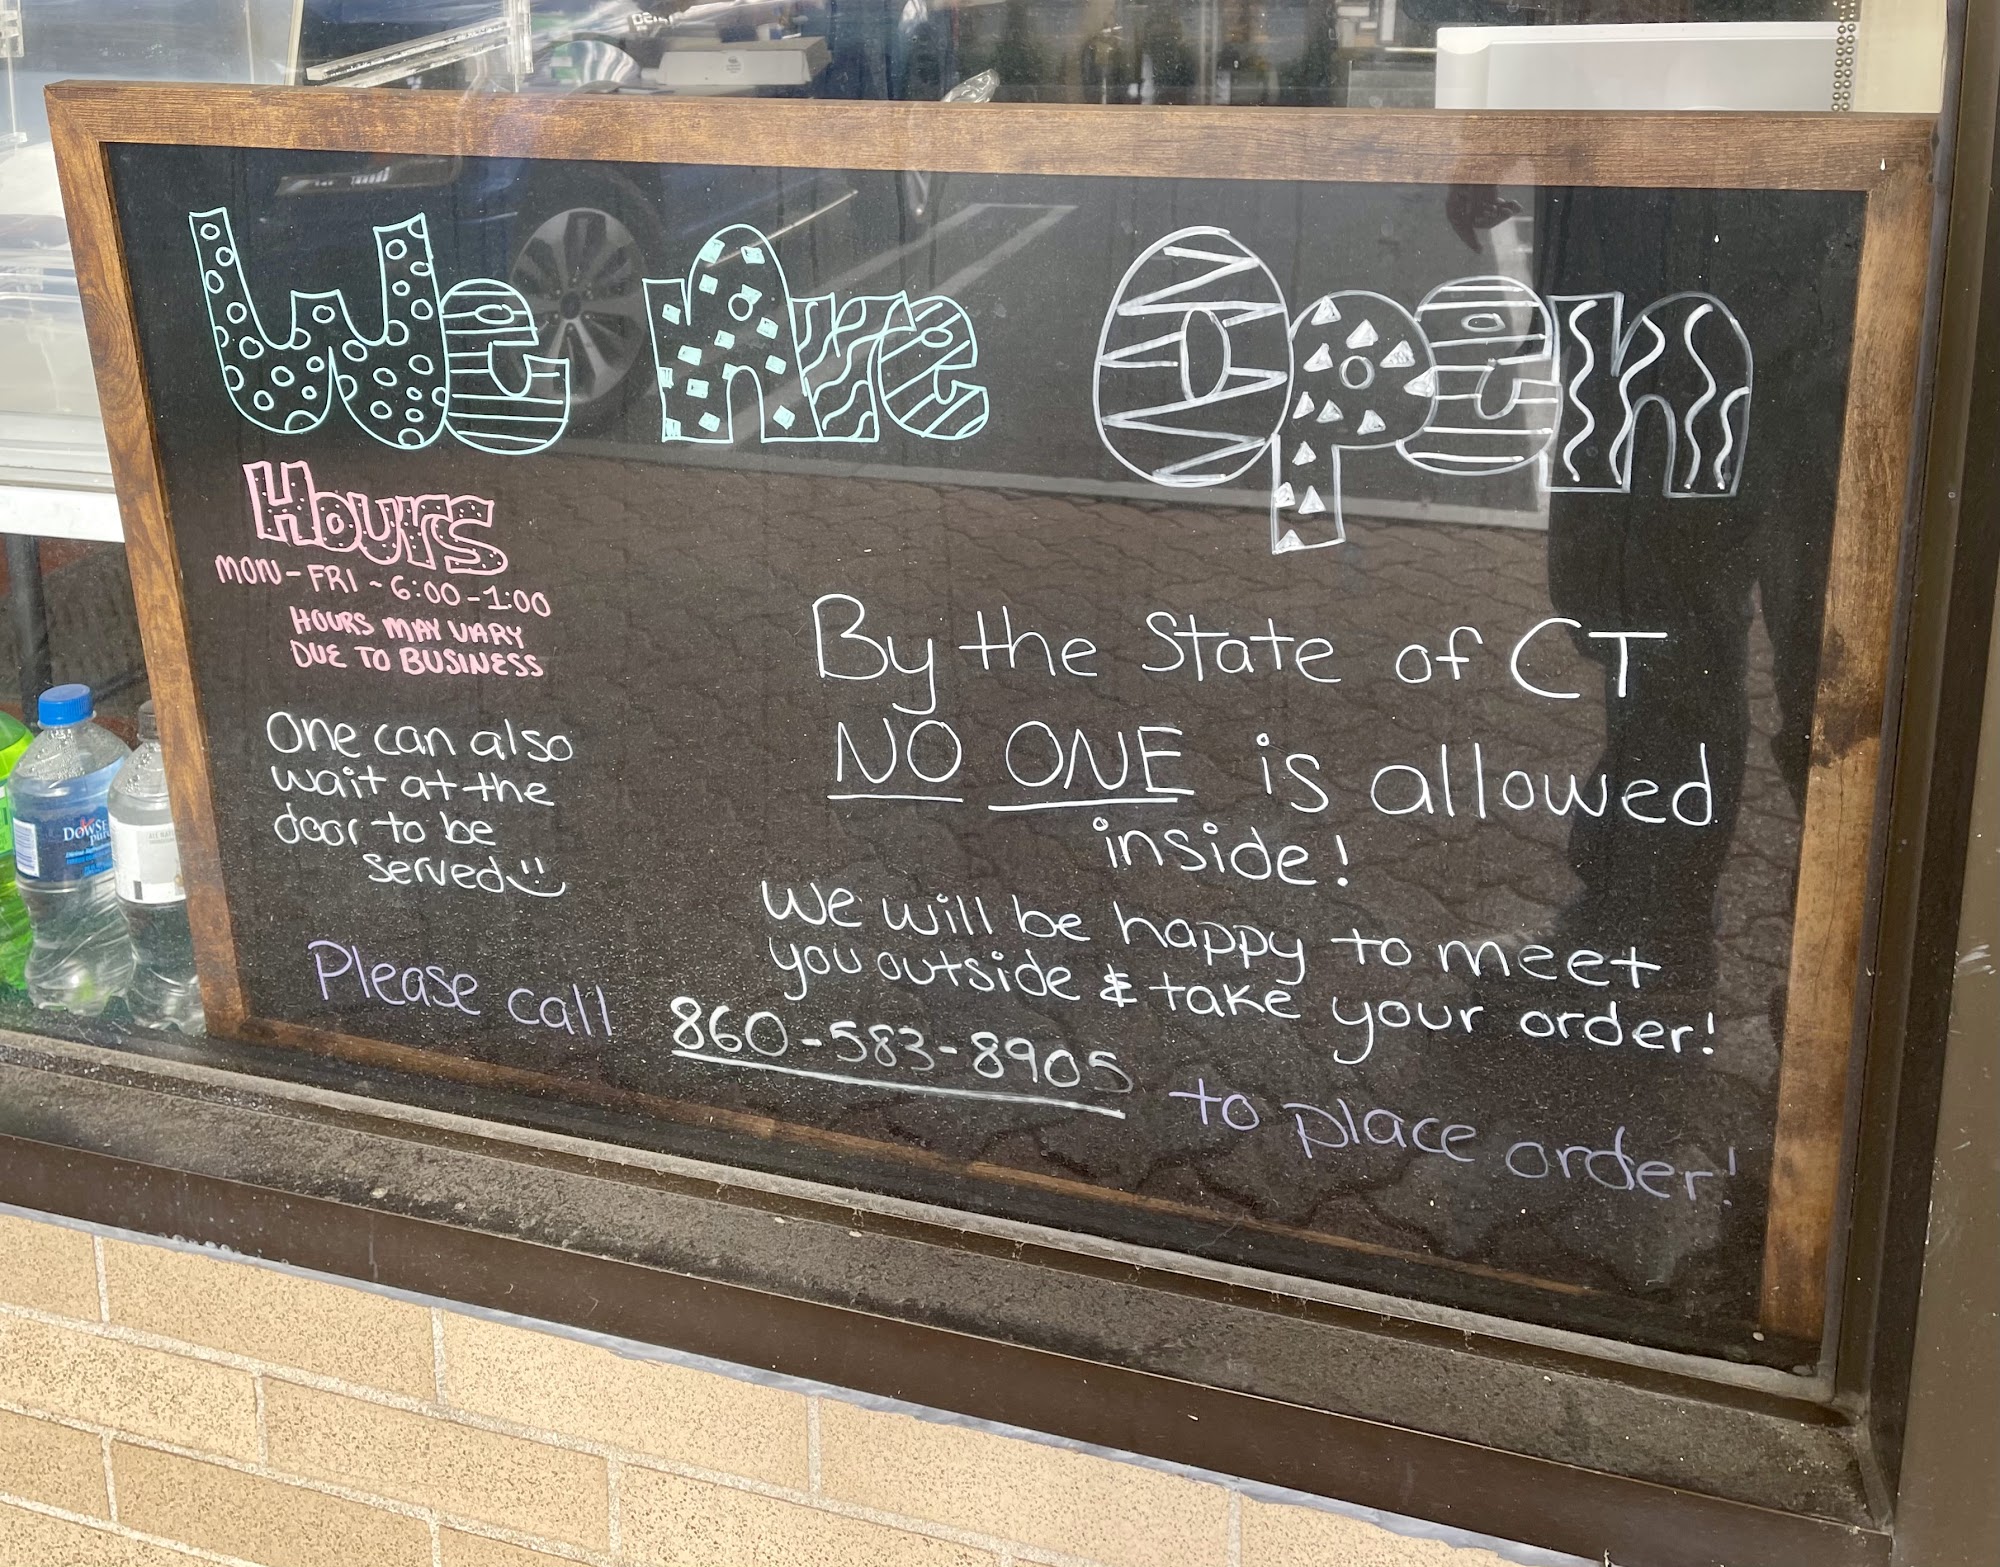 We Are Open
Hours
MON-FRI ~ 6:00-1:00
HOURS MAY VARY
DUE TO BUSINESS
One can also
wait at the
door to be
served
By the State of CT
NO ONE is allowed
inside!
We will be happy to meet
you outside & take your order!
Please call 860-583-8905 to place order!